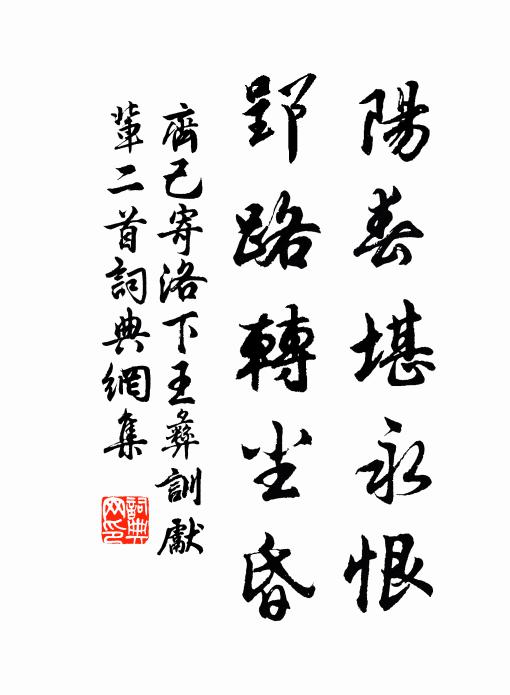 陽春堪永恨
郢路轉尘昏
齊己寄洛下王彝訓獻
輩二首詞典網集
詞典
网印